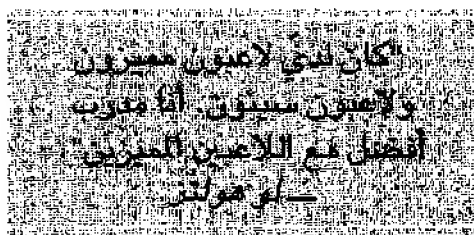 "كان لديّ لاعبون مميزون
ولاعبون سيئون. أنا مدرب
أفضل مع اللاعبين المميزين"
—لو هولتز